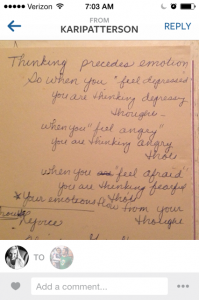 Verizon 7:03 AM
FROM
KARIPATTERSON
REPLY
Thinking precedes emotion
So when you "feel depressed"
you are thinking depressing
thoughts
when you "feel angry"
you are thinking angry
thots
when you "feel afraid"
you are thinking fearful
thots
*Your emotions flow from your
thought
Rejoice
TO
Add a comment...